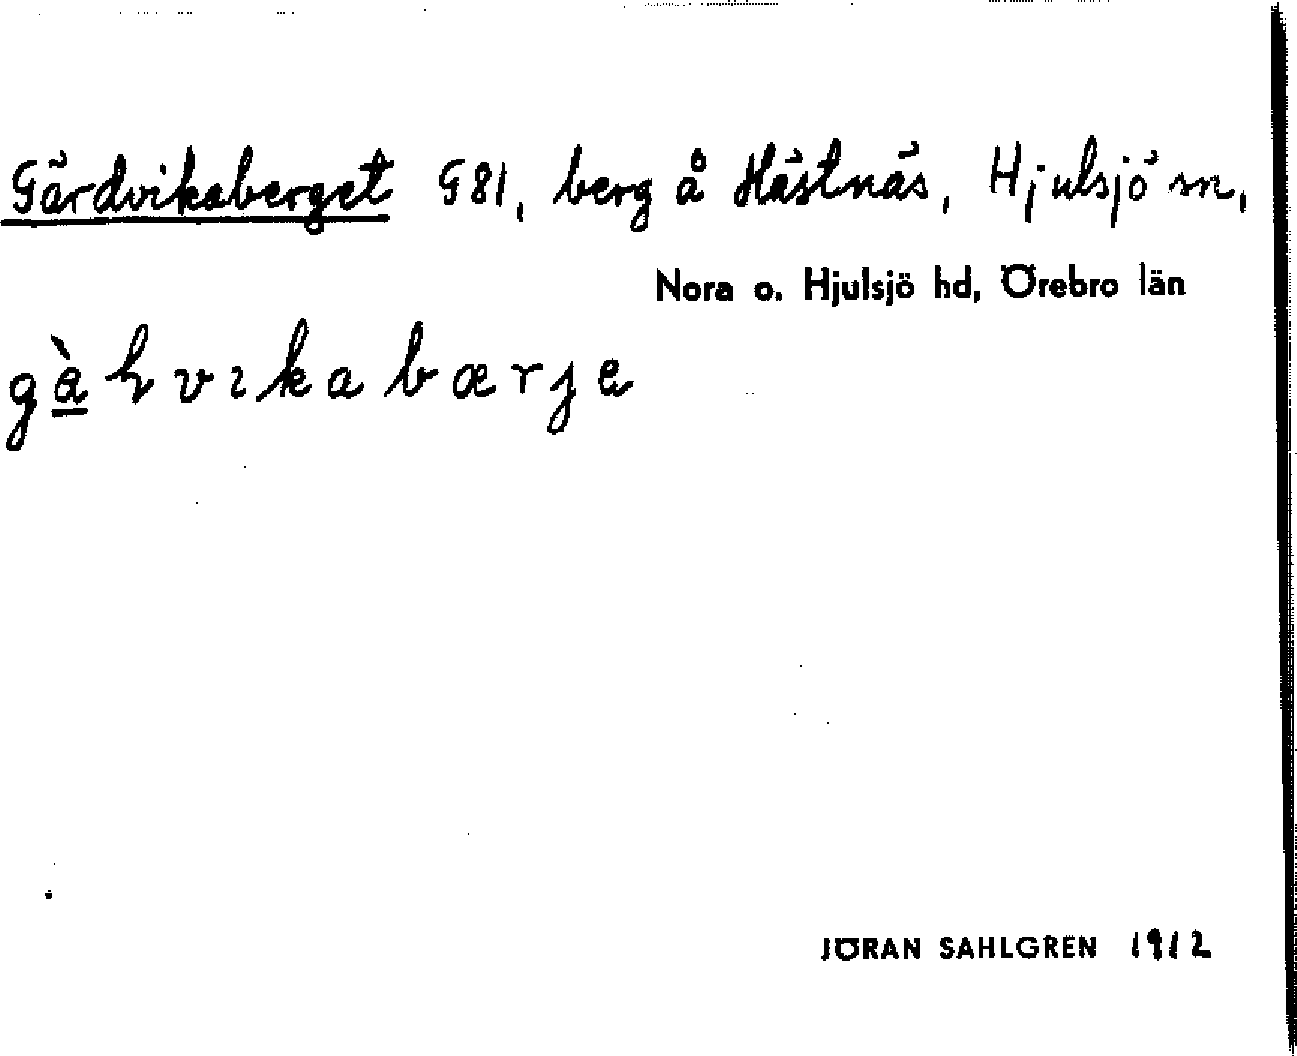 Gärdvikaberget G81, berg å Hästnäs, Hjulsjö sn,
Nora o. Hjulsjö hd, Örebro län
JÖRAN SAHLGREN 1912